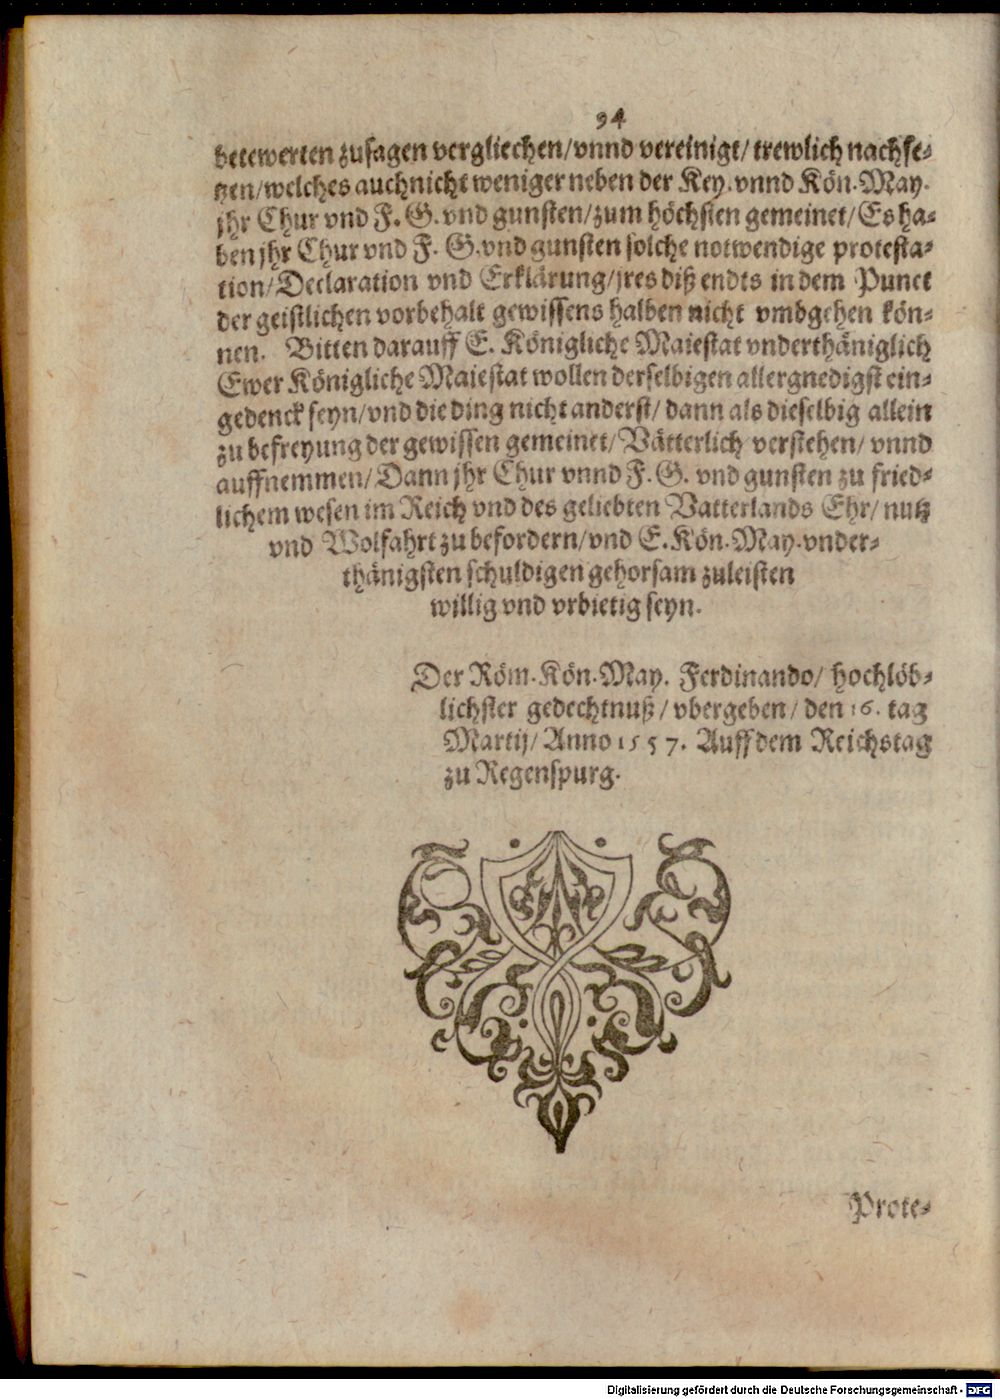 94
betewerten zusagen vergliechen/vnnd vereinigt/ trewlich nachse⸗
tzen/welches auch nicht weniger neben der Key. vnnd Kön. May.
jhr Chur vnd F. G. vnd gunsten/zum höchsten gemeinet/ Es ha⸗
ben jhr Chur vnd F. G. vnd gunsten solche notwendige protesta⸗
tion/ Declaration vnd Erklärung/jres diß endts in dem Punct
der geistlichen vorbehalt gewissens halben nicht vmbgehen kön⸗
nen. Bitten darauff E. Königliche Maiestat vnderthäniglich
Ewer Königliche Maiestat wollen derselbigen allergnedigst ein⸗
gedenck seyn/vnd die ding nicht anderst/ dann als dieselbig allein
zu befreyung der gewissen gemeinet/ Vätterlich verstehen/ vnnd
auffnemmen/ Dann jhr Chur vnnd F. G. vnd gunsten zu fried⸗
lichem wesen im Reich vnd des geliebten Vatterlands Ehr/ nutz
vnd Wolfahrt zu befordern/vnd E. Kön. May. vnder⸗
thänigsten schuldigen gehorsam zuleisten
willig vnd vrbietig seyn.
Der Röm. Kön. May. Ferdinando/ hochlöb⸗
lichster gedechtnuß/ vbergeben/ den 16. tag
Martij/ Anno 1557. Auff dem Reichstag
zu Regenspurg.
Prote⸗
Digitalisierung gefördert durch die Deutsche Forschungsgemeinschaft - DFG